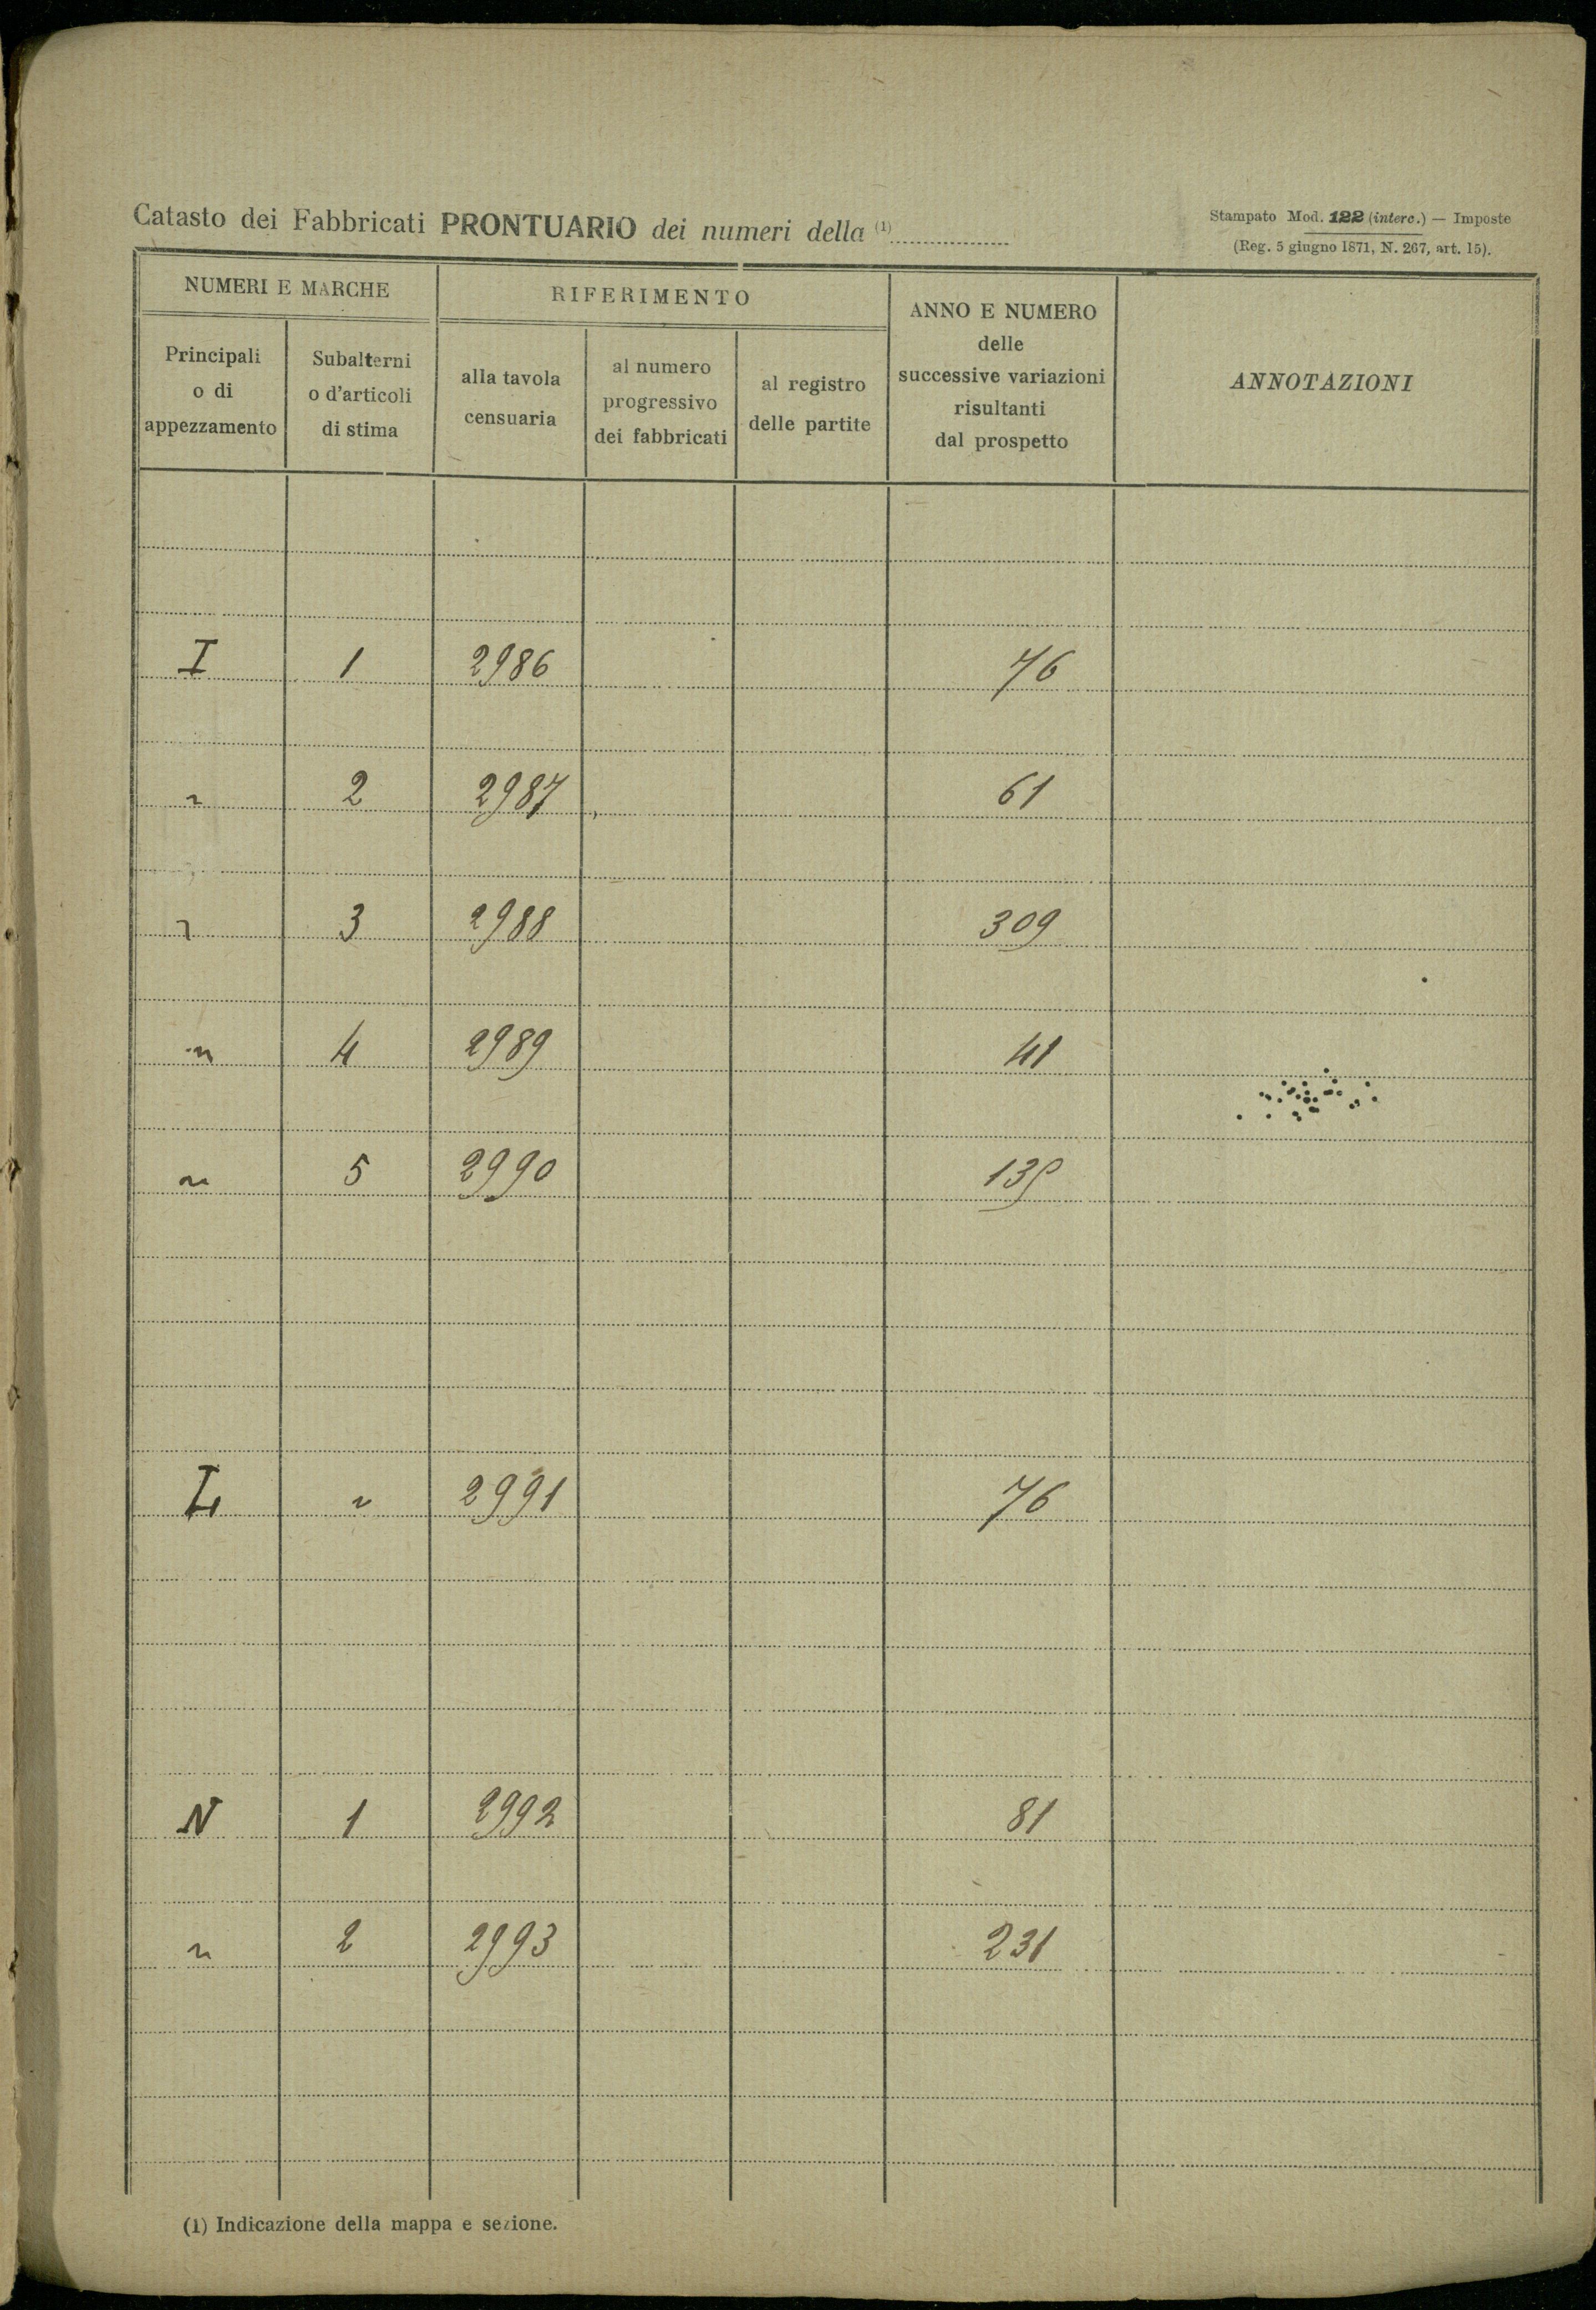 Catasto dei Fabbricati PRONTUARIO dei numeri della (1)
Stampato Mod. 122 (interc.) — Imposte
(Reg. 5 giugno 1871, N. 267, art. 15).
NUMERI E MARCHE
RIFERIMENTO
ANNO E NUMERO
delle
successive variazioni
risultanti
dal prospetto
ANNOTAZIONI
Principali
o di
appezzamento
Subalterni
o d'articoli
di stima
alla tavola
censuaria
al numero
progressivo
dei fabbricati
al registro
delle partite
I 1 2986 76
" 2 2987 61
" 3 2988 309
" 4 2989 41
" 5 2990 139
" 2991 76
N 1 2992 81
" 2 2993 231
(1) Indicazione della mappa e sezione.